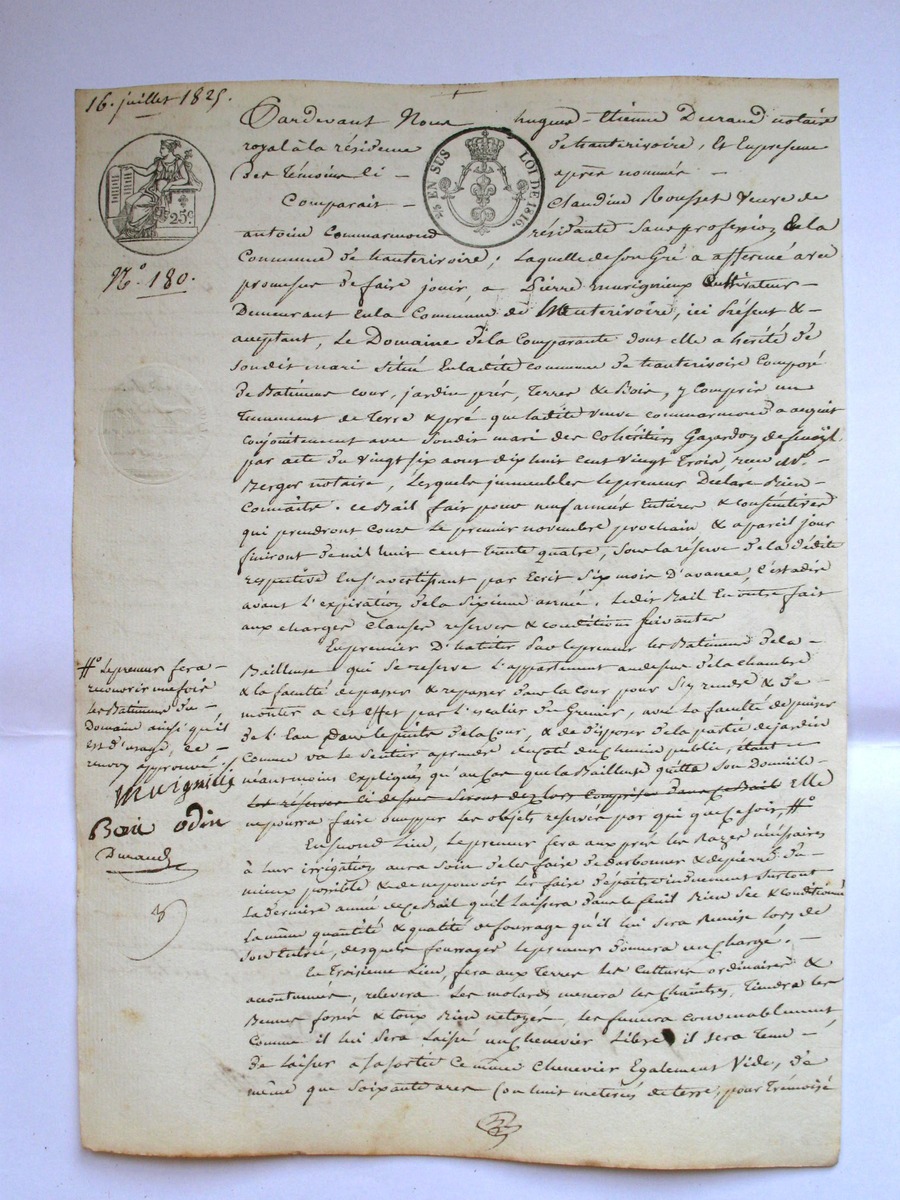 16. juillet 1825.
Pardevant Nous hugues-étienne Durand notaire
royal à la résidence d'hauterivoire, & En présence
des témoins ci- après nommés -
Comparait - Claudine Rousset veuve de
antoine Commarmond résidante sans profession En la
Commune d'hauterivoire; laquelle de son Gré a affermé avec
promesse de faire jouir, a Pierre murigneux Cultivateur-
Demeurant En la Commune de hauterivoire, ici présent &-
acceptant, le Domaine de la Comparante dont elle a hérité de
son dit mari situé En la dite commune d'hauterivoire Composé
de Batimens cour, jardin prés, terres & Bois, y compris un
tennement de terre & pré que la dite veuve commarmond a acquit
conjointement avec son dit mari des cohéritiers Gazardon de
par acte du vingt six aout dix huit cent vingt trois, reçu Me.-
Berger notaire, lesquels immeubles le preneur Déclare Bien-
Connaitre. ce Bail fait pour neuf années Entières & consécutives
qui prendront cours le premier novembre prochain & a pareil jour
finiront de mil huit cent trente quatre, sous la réserve de la dédite
respective En s'avertissant par Ecrit six mois d'avance, c'est adire
avant l'expiration de la sixième année. ledit Bail En outre fait
aux charges clauses reserves & conditions suivantes
En premier d'habiter par le preneur les Batimens de la-
Bailleuse qui se reserve l'appartement au dessus de la chambre
& la faculté de passer & repasser dans la Cour pour s'y rendre & de-
monter a cet effet par l'escalier du Grenier, avec la faculté de puiser
de l'Eau dans le puits de la Cour, & de disposer de la partie de jardin
Comme va le sentier a prendre du coté du chemin public, étant-
néanmoins expliqué, qu'au Cas que la Bailleuse quitta son Domicile-
les réserves ci dessus seront dez lors Comprises dans ce Bail Elle
ne pourra faire occuper les objets réservés par qui que ce soit, #°
En second lieu, le preneur fera aux prés les Razes nécessaires
à leur irrigation aura soin de les faire & dépierrer du-
mieux possible & de ne pouvoir les faire dépaitre indument surtout
la dernière année de ce Bail qu'il laissera dans le fenil Bien sec & Conditionné
la même quantité & qualité de fourrage qu'il lui sera Remise lors de
son Entrée, desquels fourrages le preneur demeure en Chargé.-
En troisième lieu, fera aux terres les cultures ordinaires &
accoutumées, relevera les molards menera les chaintres, tiendra les
fossés & Bien netoyés, les fumera convenablement
Comme il lui sera laissé un Chenevier libre il sera tenu-
de laisser a sa sortie Ce même Chenevier Egalement vide, de
même que soixante ares (ou huit meterées de terre, pour trémoisé
2/5 EN SUS LOI DE 1816.
25c.
N.° 180.
#° le preneur fera-
recouvrir une fois
les Batimens du-
Domaine ainsi qu'il
est d'usage, ce
renvoy approuvé
Murigneux
Odin
Durand